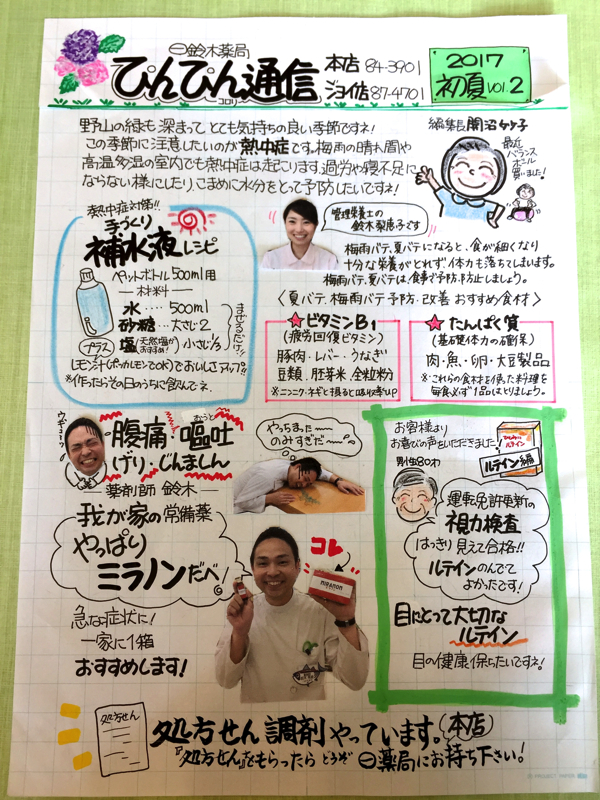 ㊀鈴木薬局
ぴんぴん通信
コロリ
本店 84-3901
ジョイ店 87-4701
2017
初夏 VOl.2
野山の緑も深まって、とても気持ちの良い季節ですネ!
この季節に注意したいのが熱中症です。梅雨の晴れ間や
高温多湿の室内でも熱中症は起こります。過労や寝不足に
ならない様にしたり、こまめに水分をとって予防したいですネ!
編集長 関沼ケケ子
最近
バランス
ボール
買いました!
熱中症対策!!
手づくり
補水液レシピ
ペットボトル500ml用
―材料―
水 ‥‥ 500ml
砂糖 ‥‥ 大さじ2
塩(天然塩がおすすめ!) 小さじ1/3
まぜるだけ!!
プラス
レモン汁(ポッカレモンでOK)でおいしさアップ!!
※作ったらその日のうちに飲んでネ。
管理栄養士の
鈴木梨恵子です
梅雨バテ、夏バテになると、食が細くなり
十分な栄養がとれず体力も落ちてしまいます。
梅雨バテ、夏バテは、食事で予防、防止しましょう。
〈夏バテ、梅雨バテ予防・改善おすすめ食材〉
★ビタミンB1
(疲労回復ビタミン)
豚肉・レバー・うなぎ
豆類、胚芽米、全粒粉
※ニンニク・ネギと摂ると吸収率UP
★たんぱく質
(基礎体力の確保)
肉・魚・卵・大豆製品
※これらの食材を使った料理を
毎食必ず1品はとりましょう。
ウギューッ
腹痛・嘔吐
おうと
げり・じんましん
―薬剤師 鈴木―
我が家の常備薬
やっぱり
ミラノンだべ!
急な症状に!
一家に1箱
おすすめします!
やっちまった～
のみすぎだ～
コレ
お客様より
お喜びの声をいただきました!
ルテイン
ルテイン編
男性80才
運転免許更新の
視力検査
はっきり見えて合格!!
ルテインのんでて
よかったです!
目にとって大切な
ルテイン
目の健康保ちたいですネ!
処方せん
処方せん調剤やっています。(本店)
『処方せん』をもらったら どうぞ ㊀薬局にお持ち下さい!